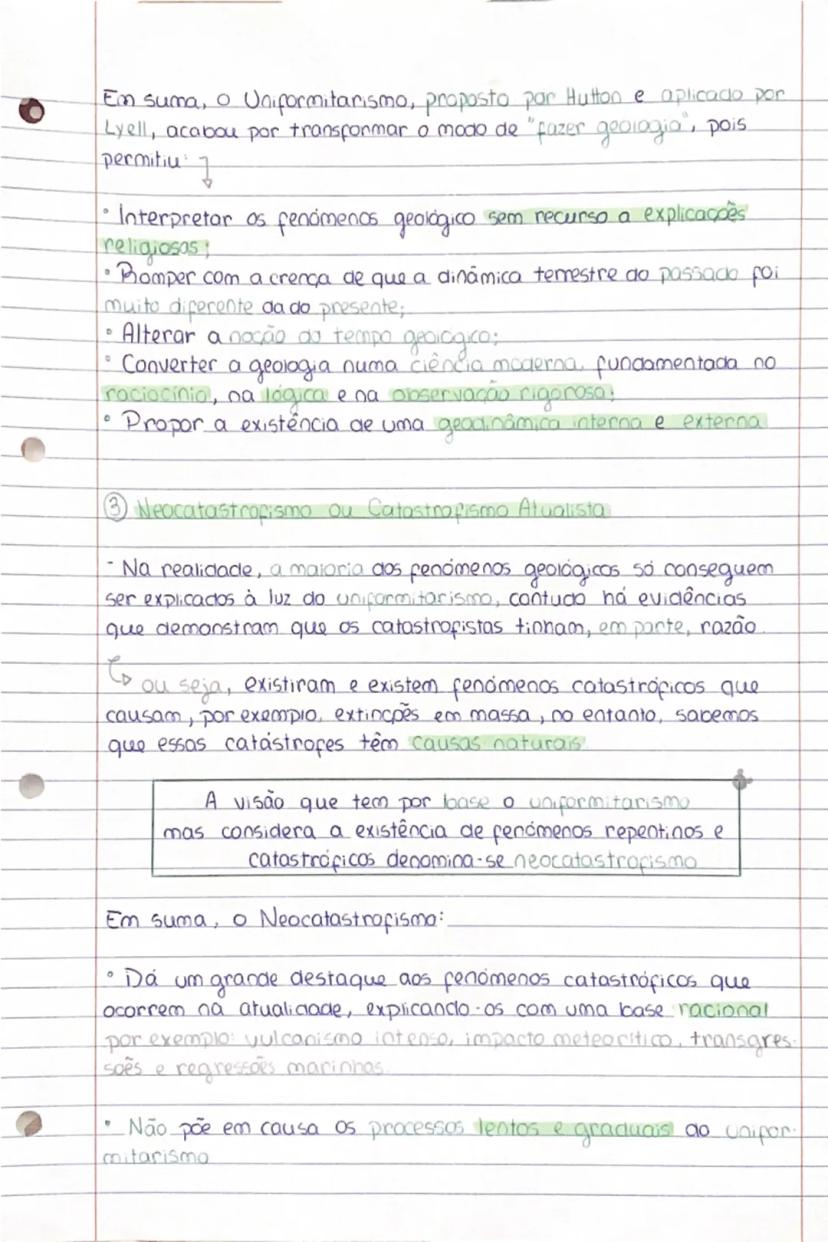 Em suma, o Uniformitarismo, proposto por Hutton e aplicado por
Lyell, acabou por transformar o modo de "fazer geologia", pois
permitiu:
• Interpretar os fenómenos geológico sem recurso a explicações
religiosas;
• Romper com a crença de que a dinâmica terrestre do passado foi
muito diferente da do presente;
• Alterar a noção do tempo geológico;
• Converter a geologia numa ciência moderna, fundamentada no
raciocínio, na lógica e na observação rigorosa;
• Propor a existência de uma geodinâmica interna e externa
③ Neocatastrofismo ou Catastrofismo Atualista
- Na realidade, a maioria dos fenómenos geológicos só conseguem
ser explicados à luz do uniformitarismo, contudo há evidências
que demonstram que os catastrofistas tinham, em parte, razão
↳ ou seja, existiram e existem fenómenos catastróficos que
causam, por exemplo, extinções em massa, no entanto, sabemos
que essas catástrofes têm causas naturais
A visão que tem por base o uniformitarismo
mas considera a existência de fenómenos repentinos e
catastróficos denomina-se neocatastrofismo
Em suma, o Neocatastrofismo:
• Dá um grande destaque aos fenómenos catastróficos que
ocorrem na atualidade, explicando-os com uma base racional
por exemplo: vulcanismo intenso, impacto meteorítico, transgres-
soẽs e regressoẽs marinhas
• Não põe em causa os processos lentos e graduais do unifor-
mitarismo